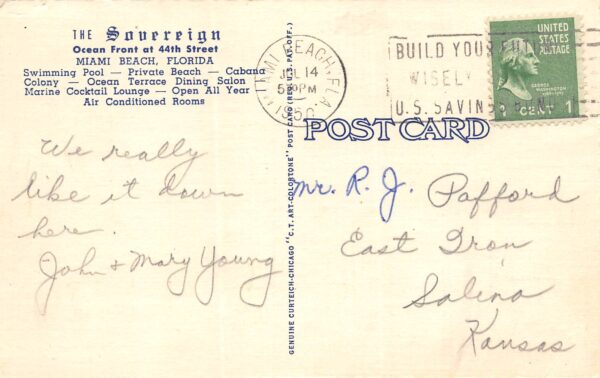 THE Sovereign
Ocean Front at 44th Street
MIAMI BEACH, FLORIDA
Swimming Pool — Private Beach — Cabana
Colony — Ocean Terrace Dining Salon —
Marine Cocktail Lounge — Open All Year
Air Conditioned Rooms
We really
like it down
here.
John & Mary Young
GENUINE CURTEICH-CHICAGO "C.T. ART-COLORTONE" POST CARD (REG. U.S. PAT. OFF.)
MIAMI BEACH, FLA.
JUL 14
PM
1950
BUILD YOUR FUTURE
WISELY
U.S. SAVINGS BONDS
UNITED
STATES
POSTAGE
GEORGE
WASHINGTON
1 CENT
POST CARD
Mr. R. J. Pafford
East Iron
Salina
Kansas